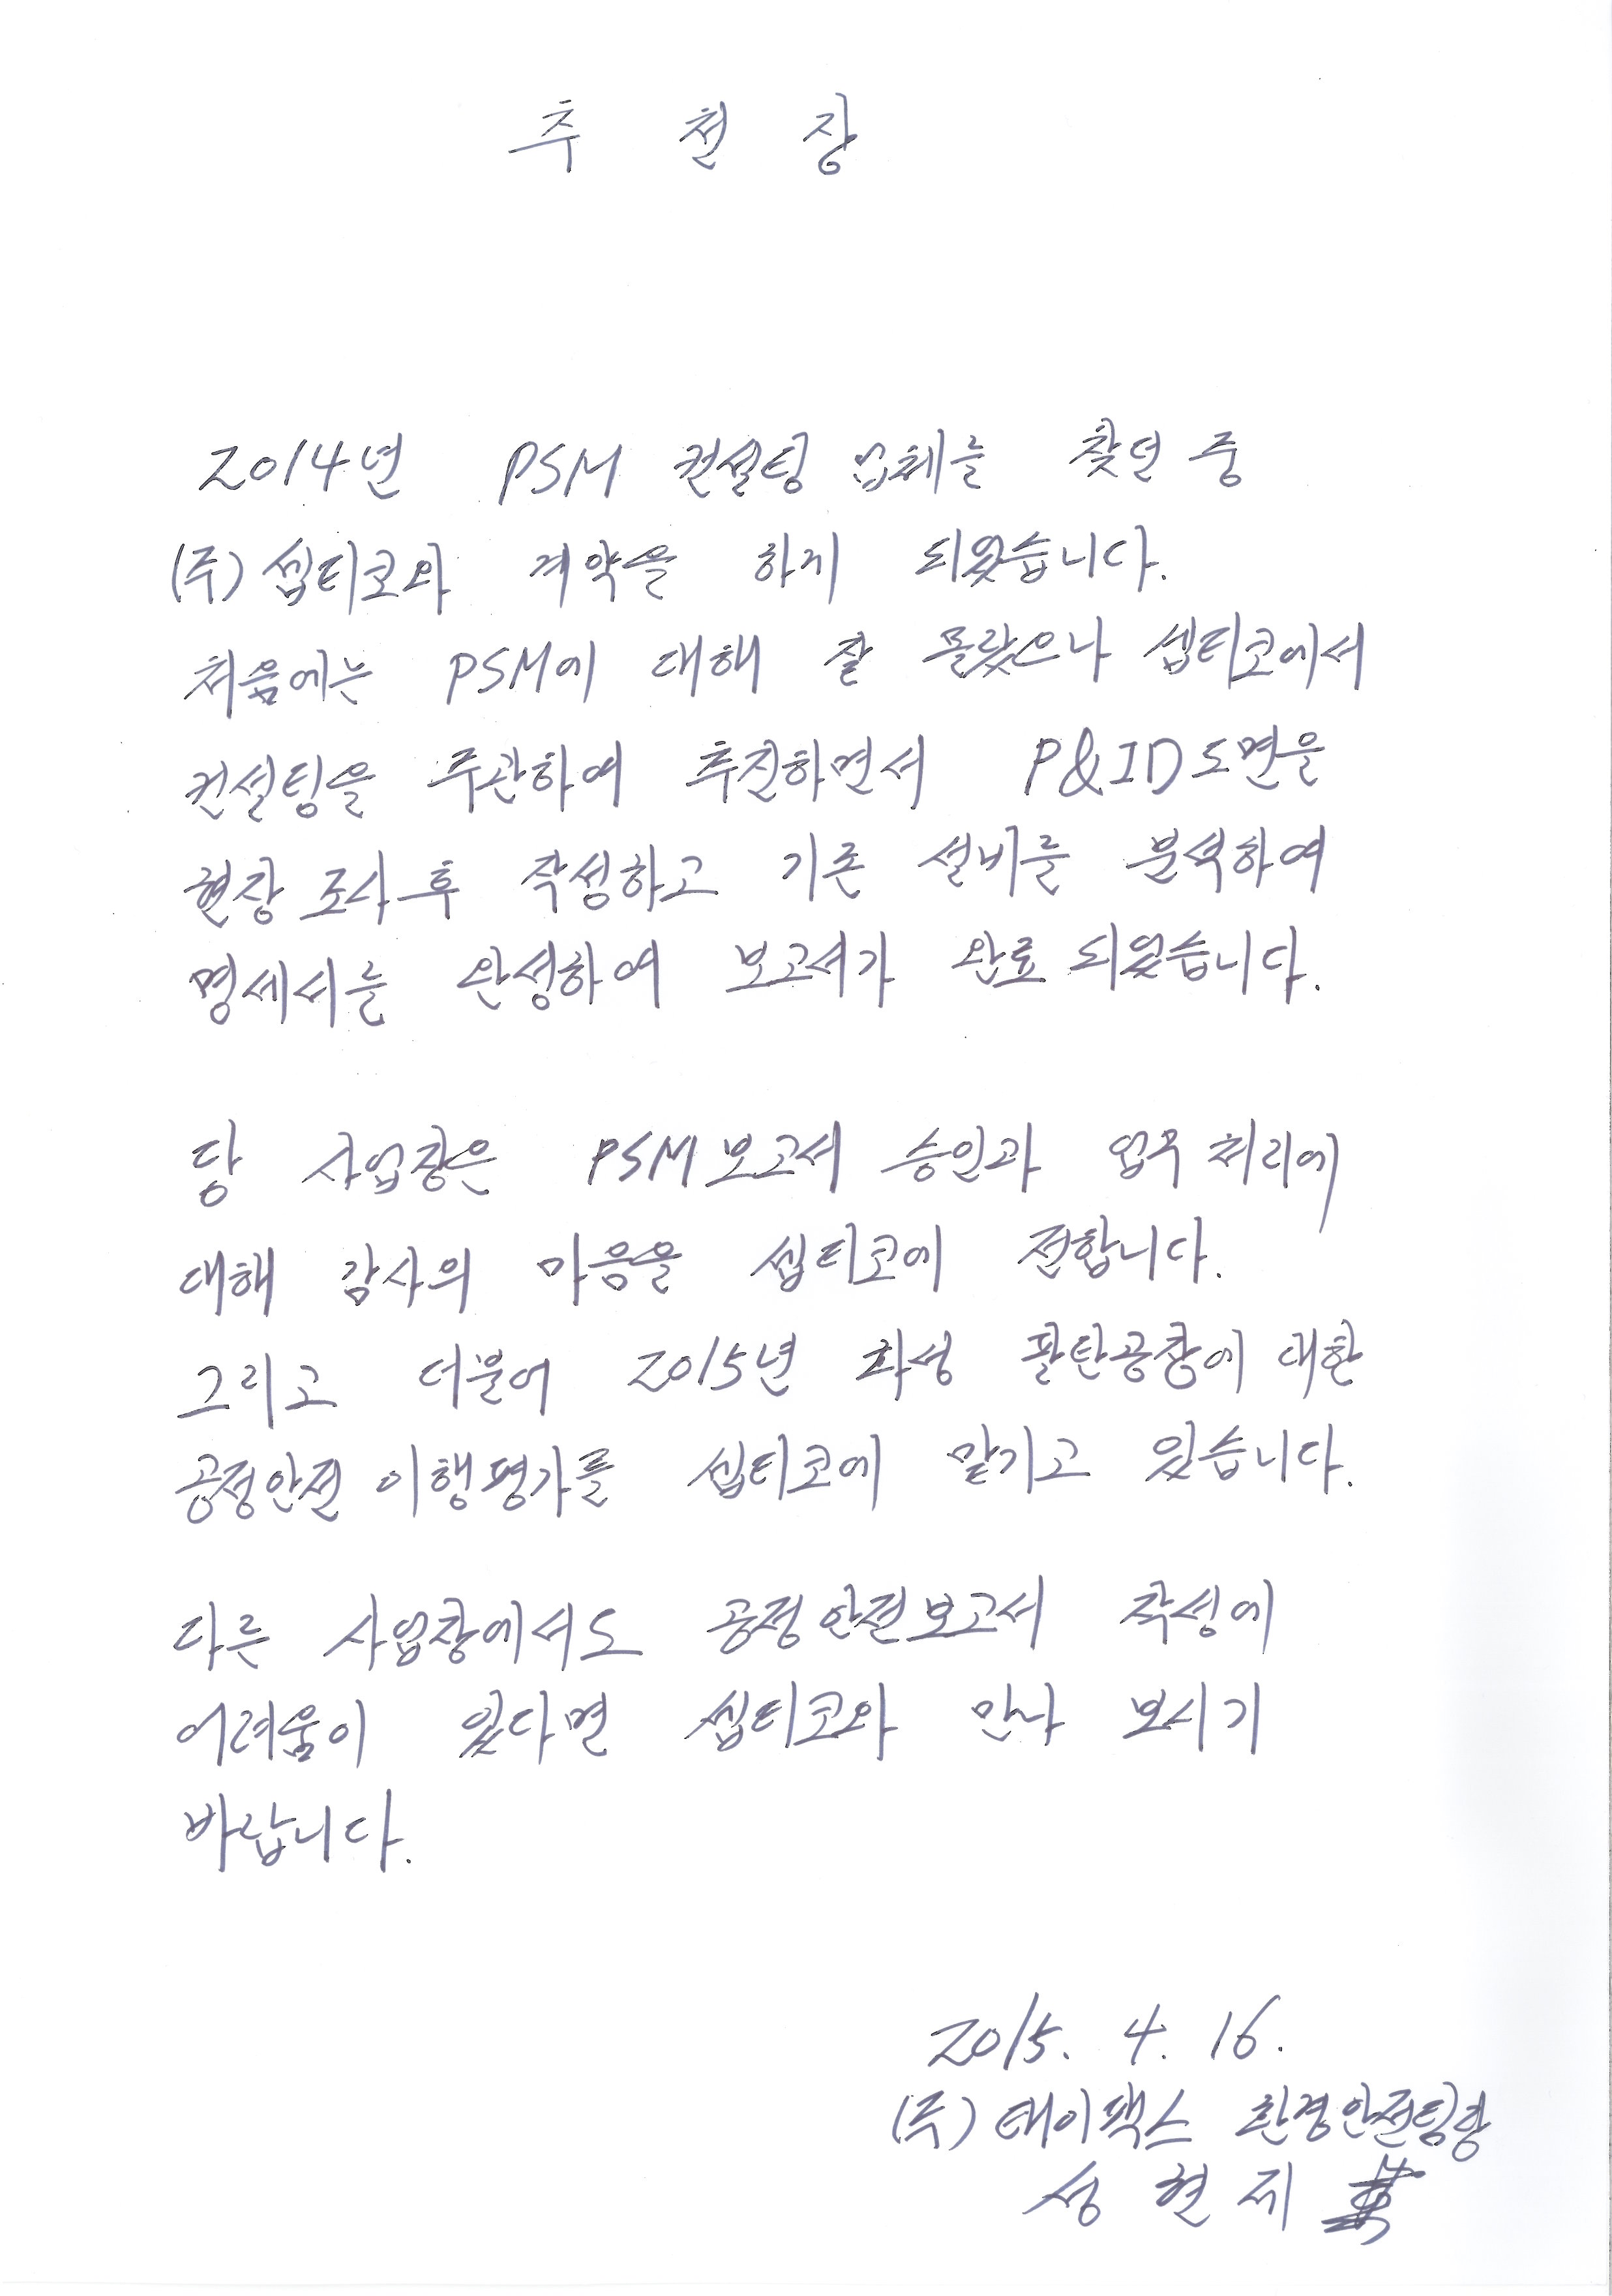 추 천 장
2014년 PSM 컨설팅 업체를 찾던 중
(주) 셉티코와 계약을 하게 되었습니다.
처음에는 PSM에 대해 잘 몰랐으나 셉티코에서
컨설팅을 주관하여 추진하면서 P&ID도면을
현장 조사 후 작성하고 기존 설비를 분석하여
명세서를 완성하여 보고서가 완료 되었습니다.
당 사업장은 PSM보고서 승인과 업무 처리에
대해 감사의 마음을 셉티코에 전합니다.
그리고 더불어 2015년 화성 팔탄공장에 대한
공정안전 이행평가를 셉티코에 맡기고 있습니다.
다른 사업장에서도 공정안전보고서 작성에
어려움이 있다면 셉티코와 만나 보시기
바랍니다.
2015. 4. 16.
(주) 테이팩스 환경안전팀장
성 현 제